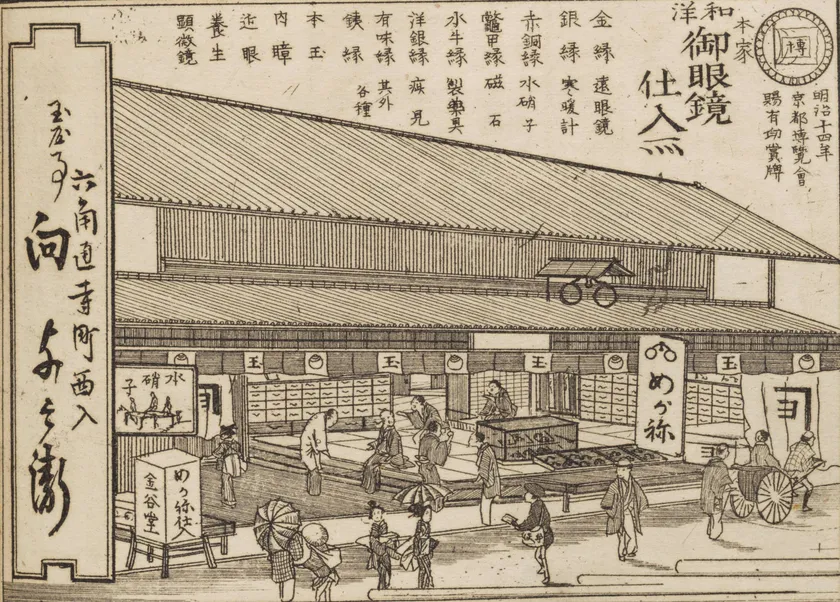 博
明治十四年
京都博覧會
賜有功賞牌
本家
和洋
御眼鏡
仕入所
金縁 遠眼鏡
銀縁 寒暖計
赤銅縁 水硝子
鼈甲縁 磁石
水牛縁 製薬具
洋銀縁 疾見
有味縁 其外各種
鉄縁
本玉
内瞳
近眼
養生
顕微鏡
六角通寺町西入
玉屋事
向
玉
玉
玉
玉
水硝子
めか祢
ヨ
ヨ
めか祢仕入
金谷堂